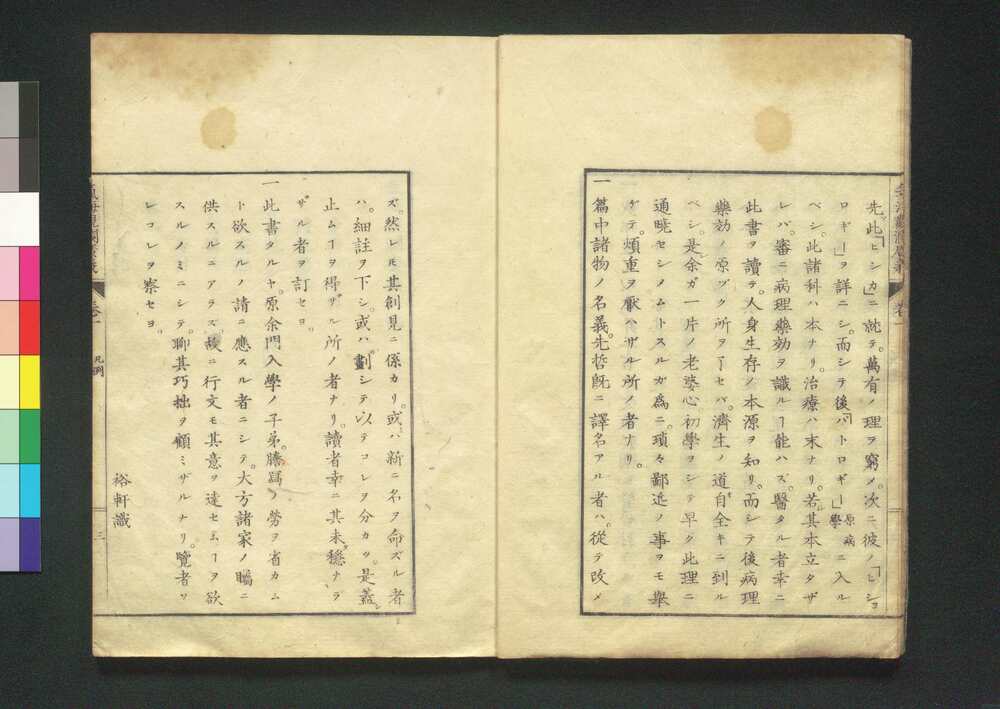 先此「ヒシカ」ニ就テ。萬有ノ理ヲ窮メ。次ニ彼ノ「ヒショ
ロギー」ヲ詳ニシ。而シテ後「パトロギー」原病學ニ入ル
ベシ。此諸科ハ本ナリ。治療ハ末ナリ。若其本立タザ
レバ。審ニ病理藥効ヲ識ルヿ能ハズ。醫タル者幸ニ
此書ヲ讀テ。人身生存ノ本源ヲ知リ。而シテ後病理
藥効ノ原ヅク所ヲ了セバ。濟生ノ道自全キニ到ル
ベシ。是余ガ一片ノ老婆心初學ヲシテ早ク此理ニ
通曉セシメムトスルガ為ニ。瑣々鄙近ノ事ヲモ擧
ゲテ。煩重ヲ厭ハザル所ノ者ナリ。
一 篇中諸物ノ名義。先哲既ニ譯名アル者ハ。從テ改メ
ズ。然レ𪜈其創見ニ係カリ。或ハ新ニ名ヲ命ズル者
ハ。細註ヲ下シ。或ハ劃シテ以テコレヲ分カツ。是蓋
止ムヿヲ得ザル所ノ者ナリ。讀者幸ニ其未穩ナラ
ザル者ヲ訂セヨ。
一 此書タルヤ。原余門入學ノ子弟。謄寫ノ勞ヲ省カム
ト欲スルノ請ニ應スル者ニシテ。大方諸家ノ矚ニ
供スルニアラズ。故ニ行文モ其意ヲ達セムヿヲ欲
スルノミニシテ。聊其巧拙ヲ顧ミザルナリ。覽者ソ
レコレヲ察セヨ。
裕軒識
卷一
凡例
三